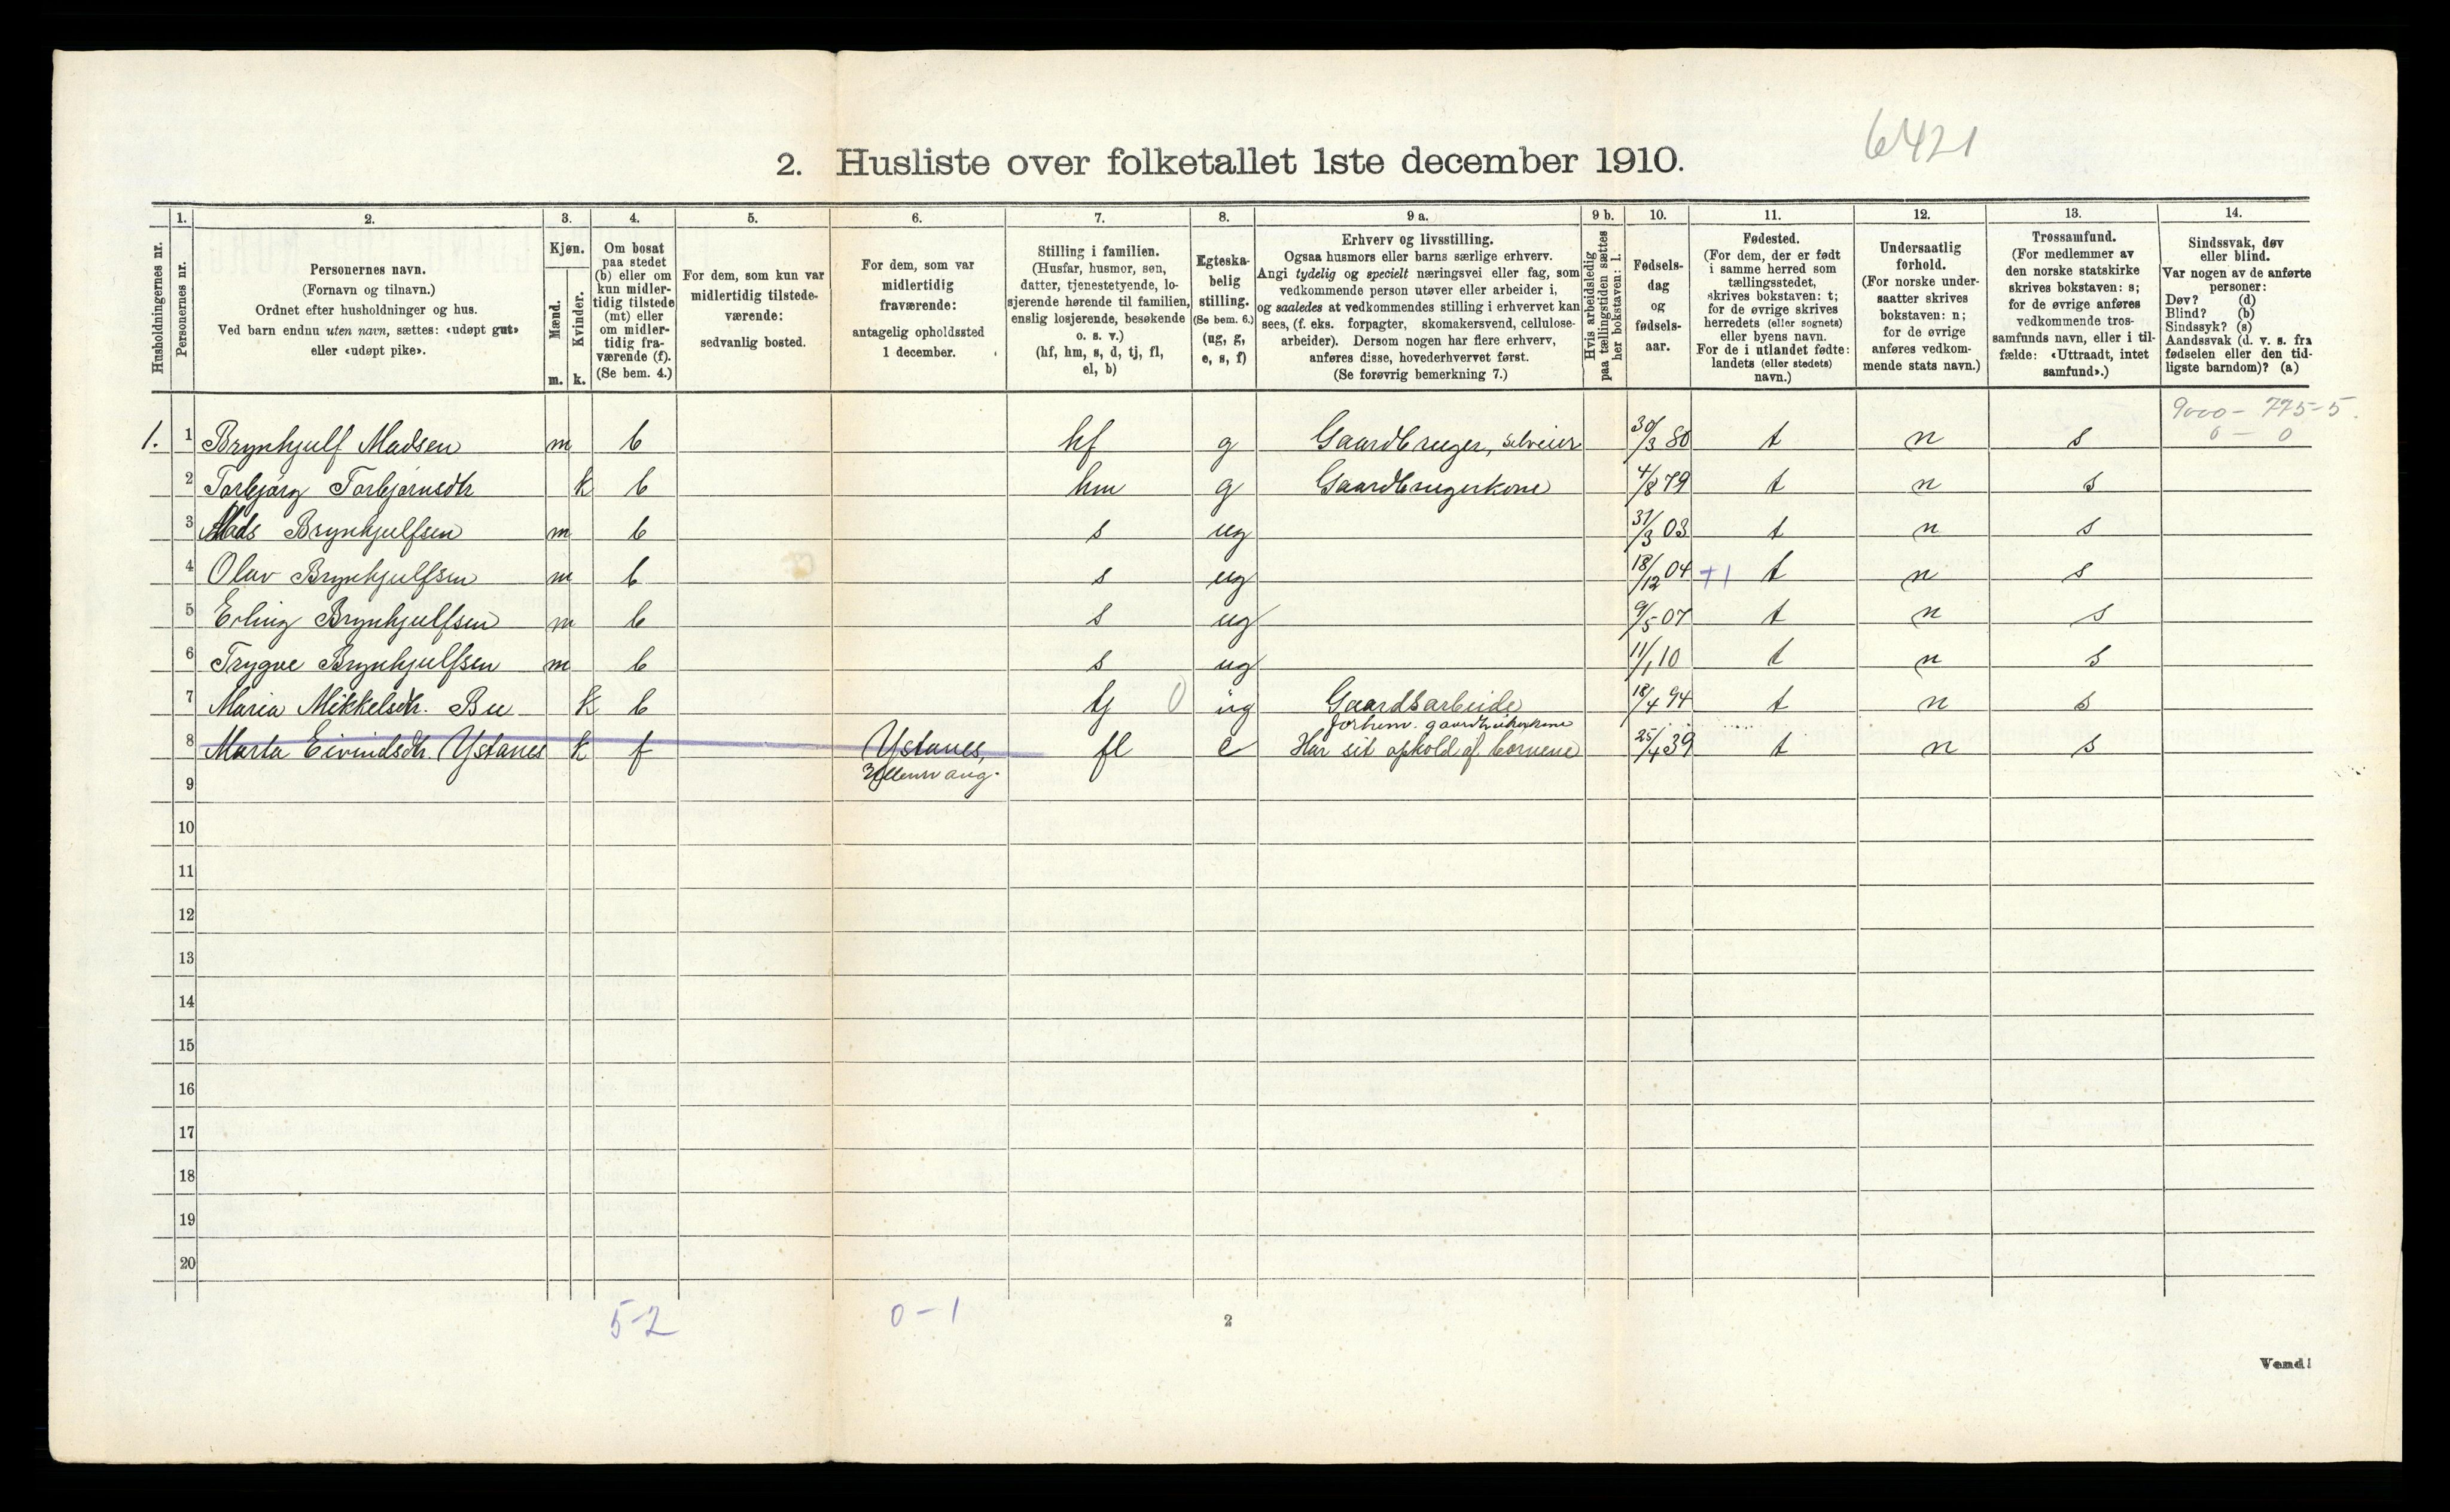 6421
2. Husliste over folketallet 1ste december 1910.
Husholdningernes nr.
1.
Personernes nr.
2.
Personernes navn.
(Fornavn og tilnavn.)
Ordnet efter husholdninger og hus.
Ved barn endnu uten navn, sættes: «udøpt gut»
eller «udøpt pike».
3.
Kjøn.
Mænd.
m.
Kvinder.
k.
4.
Om bosat
paa stedet
(b) eller om
kun midler-
tidig tilstede
(mt) eller
om midler-
tidig fra-
værende (f).
(Se bem. 4.)
5.
For dem, som kun var
midlertidig tilstede-
værende:
sedvanlig bosted.
6.
For dem, som var
midlertidig
fraværende:
antagelig opholdssted
1 december.
7.
Stilling i familien.
(Husfar, husmor, søn,
datter, tjenestetyende, lo-
sjerende hørende til familien,
enslig losjerende, besøkende
o. s. v.)
(hf, hm, s, d, tj, fl,
el, b)
8.
Egteska-
belig
stilling.
(Se bem. 6.)
(ug, g,
e, s, f)
9 a.
Erhverv og livsstilling.
Ogsaa husmors eller barns særlige erhverv.
Angi tydelig og specielt næringsvei eller fag, som
vedkommende person utøver eller arbeider i,
og saaledes at vedkommendes stilling i erhvervet kan
sees, (f. eks. forpagter, skomakersvend, cellulose-
arbeider). Dersom nogen har flere erhverv,
anføres disse, hovederhvervet først.
(Se forøvrig bemerkning 7.)
9 b.
Hvis arbeidsledig
paa tællingstiden sættes
her bokstaven: l.
10.
Fødsels-
dag
og
fødsels-
aar.
11.
Fødested.
(For dem, der er født
i samme herred som
tællingsstedet,
skrives bokstaven: t;
for de øvrige skrives
herredets (eller sognets)
eller byens navn.
For de i utlandet fødte:
landets (eller stedets)
navn.)
12.
Undersaatlig
forhold.
(For norske under-
saatter skrives
bokstaven: n;
for de øvrige
anføres vedkom-
mende stats navn.)
13.
Trossamfund.
(For medlemmer av
den norske statskirke
skrives bokstaven: s;
for de øvrige anføres
vedkommende tros-
samfunds navn, eller i til-
fælde: «Uttraadt, intet
samfund».)
14.
Sindssvak, døv
eller blind.
Var nogen av de anførte
personer:
Døv? (d)
Blind? (b)
Sindssyk? (s)
Aandssvak (d. v. s. fra
fødselen eller den tid-
ligste barndom)? (a)
9000 - 775-5.
0 - 0
1. 1 Brynhjulf Madsen m b hf g Gaardbruger, selveier 30/3 80 t n s
2 Torbjørg Torbjørnsdtr k b hm g Gaardbrugerkone 4/8 79 t n s
3 Mads Brynhjulfsen m b s ug 31/3 03 t n s
4 Olav Brynhjulfsen m b s ug 18/12 04 +1 t n s
5 Erling Brynhjulfsen m b s ug 9/5 07 t n s
6 Trygve Brynhjulfsen m b s ug 11/1 10 t n s
7 Maria Mikkelsdtr. Bu k b tj 0 ug Gaardsarbeide 18/4 94 t n s
8 Marta Eivindsdtr. Ystanes k f Ystanes, fl e Har sit ophold af børnene 25/4 39 t n s
9
10
11
12
13
14
15
16
17
18
19
20
5-2 0-1
2
Vend!